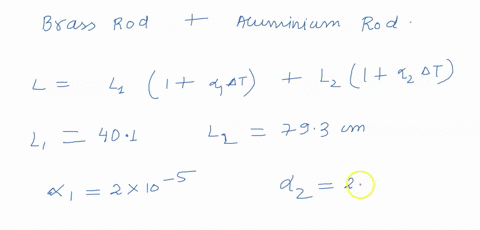 Brass Rod + Aluminium Rod.
L = L₁ (1 + α₁ΔT) + L₂ (1 + α₂ ΔT)
L₁ = 40.1 L₂ = 79.3 cm
α₁ = 2 × 10⁻⁵ α₂ = 2.